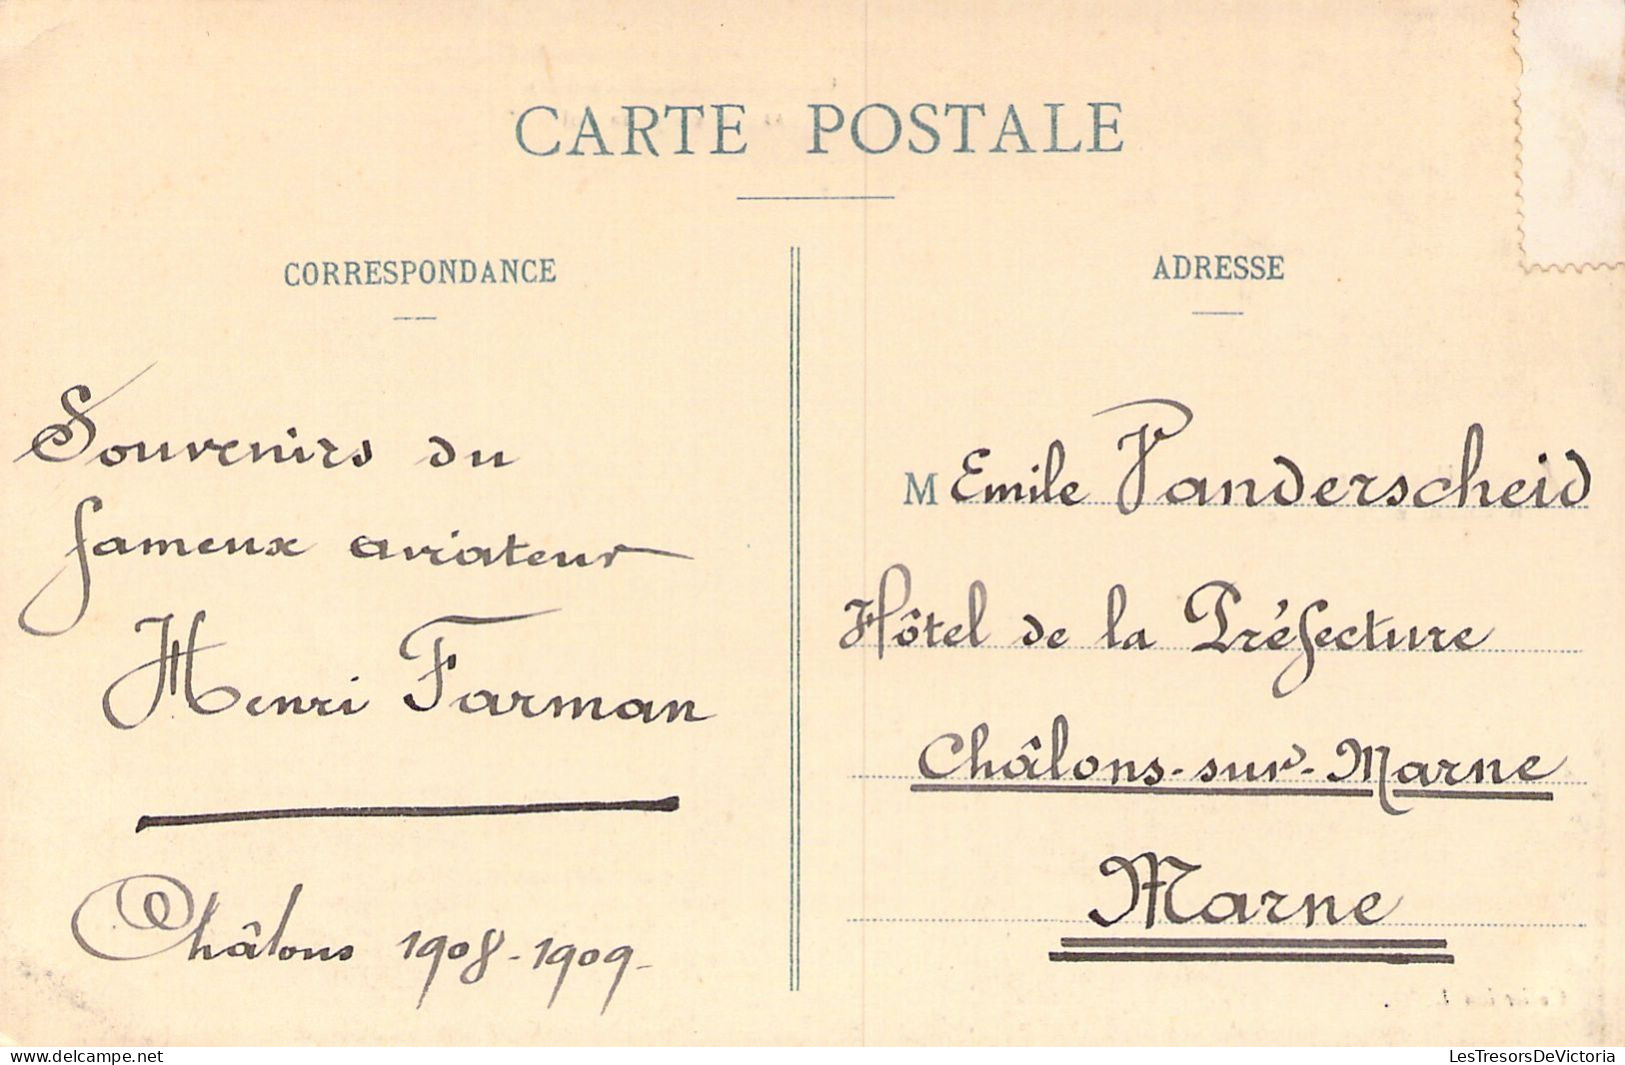 CARTE POSTALE
CORRESPONDANCE
Souvenirs du
fameux aviateur
Henri Farman
Châlons 1908-1909-
ADRESSE
M Emile Vanderscheid
Hôtel de la Préfecture
Châlons-sur-Marne
Marne
www.delcampe.net
LesTresorsDeVictoria